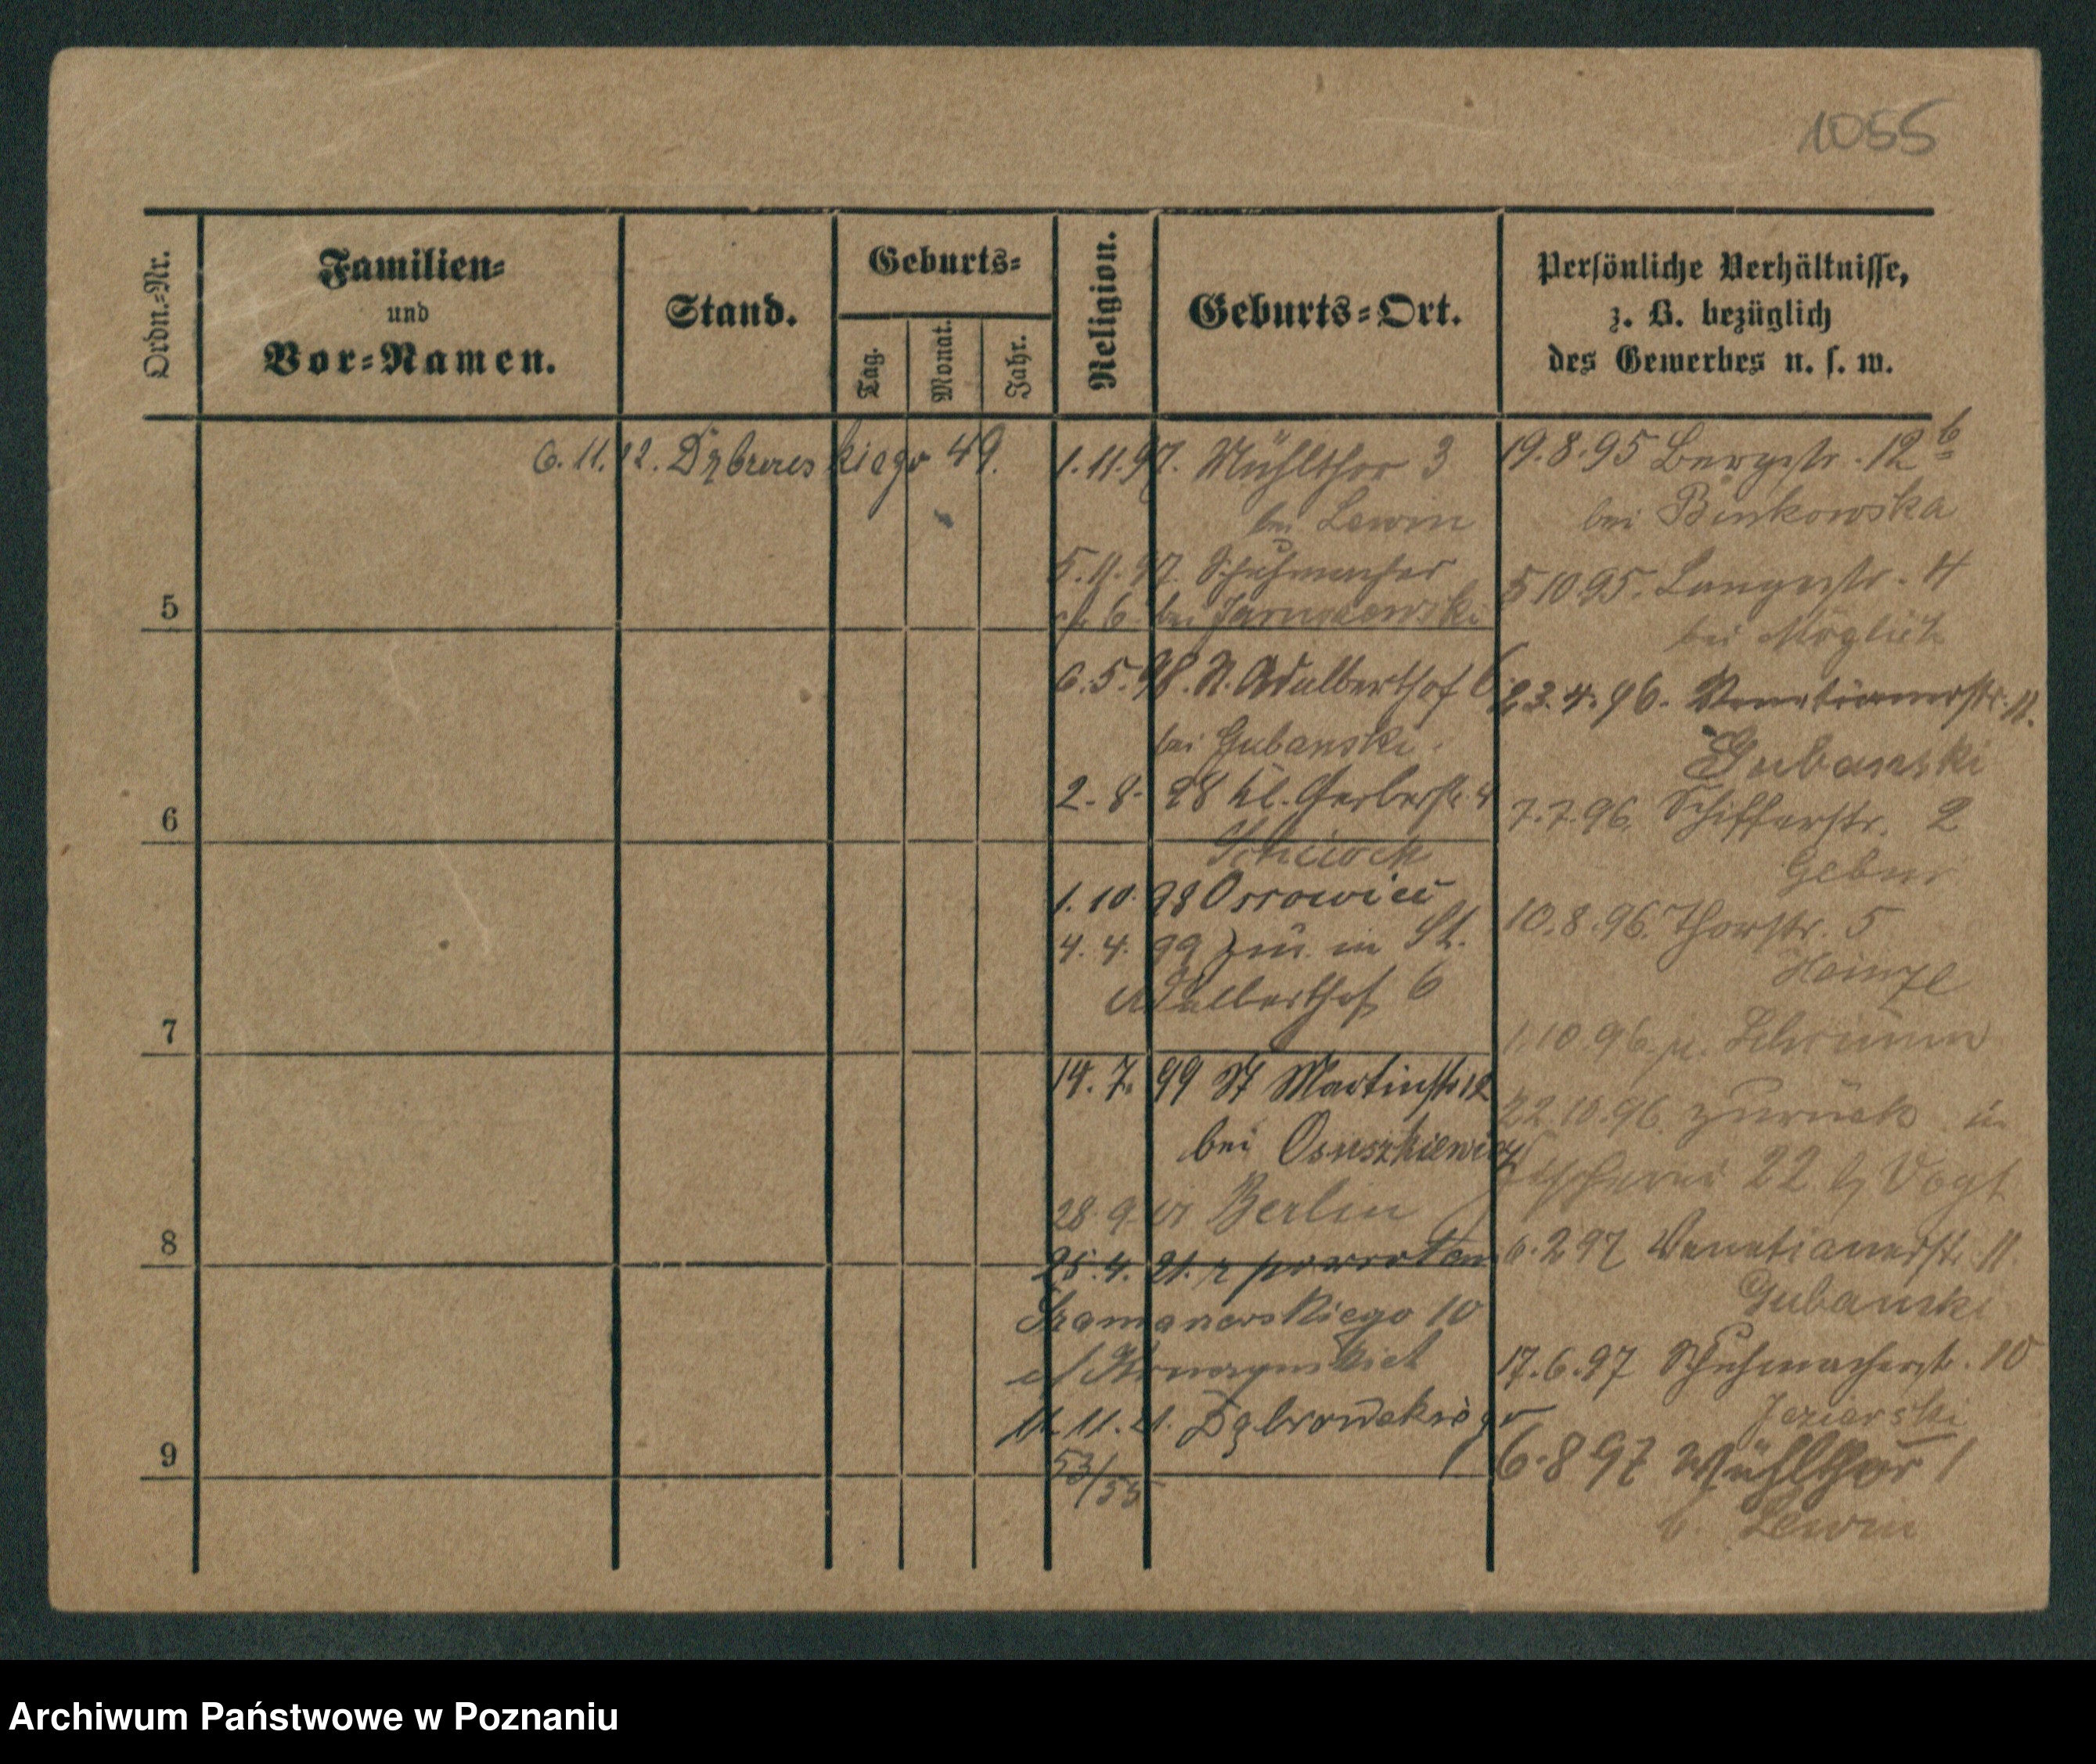 1055
Ordn.-Nr.
Familien-
und
Vor-Namen.
Stand.
Geburts-
Tag.
Monat.
Jahr.
Religion.
Geburts-Ort.
Persönliche Verhältnisse,
z. B. bezüglich
des Gewerbes u. s. w.
5
6
7
8
9
6.11.12. kiego 49.
1.11.97. Mühlthor 3
bei Lewin
5.11.97. Schuhmacher
6 bei
6.5.98. St. Adalberthof 6
bei Gubanski.
2.8.98 kl. Gerberstr. 4
1.10.98
4.4.99 zur. in St.
Adalberthof 6
14.7.99 St Martinstr 12
bei Osuszkiewicz
28.9. Berlin
25.4.21. z powrotem
10
11.11.21. Dąbrowskiego
53/55
19.8.95 Bergstr. 12b
bei Binkowska
5 10 95. Langestr. 4
bei Möglich
23.4.96. Venetianerstr. 11.
Gubanski
7.7.96. Schifferstr. 2
10.8.96. Thorstr. 5
Heinze
1.10.96. n. Schrimm
22.10.96. zurück in
22 b/ Vogt
6.2 97 Venetianerstr. 11.
Gubanski
17.6.97 Schuhmacherstr. 10
Jezierski
6.8 97 Mühlthor 1
b. Lewin
Archiwum Państwowe w Poznaniu